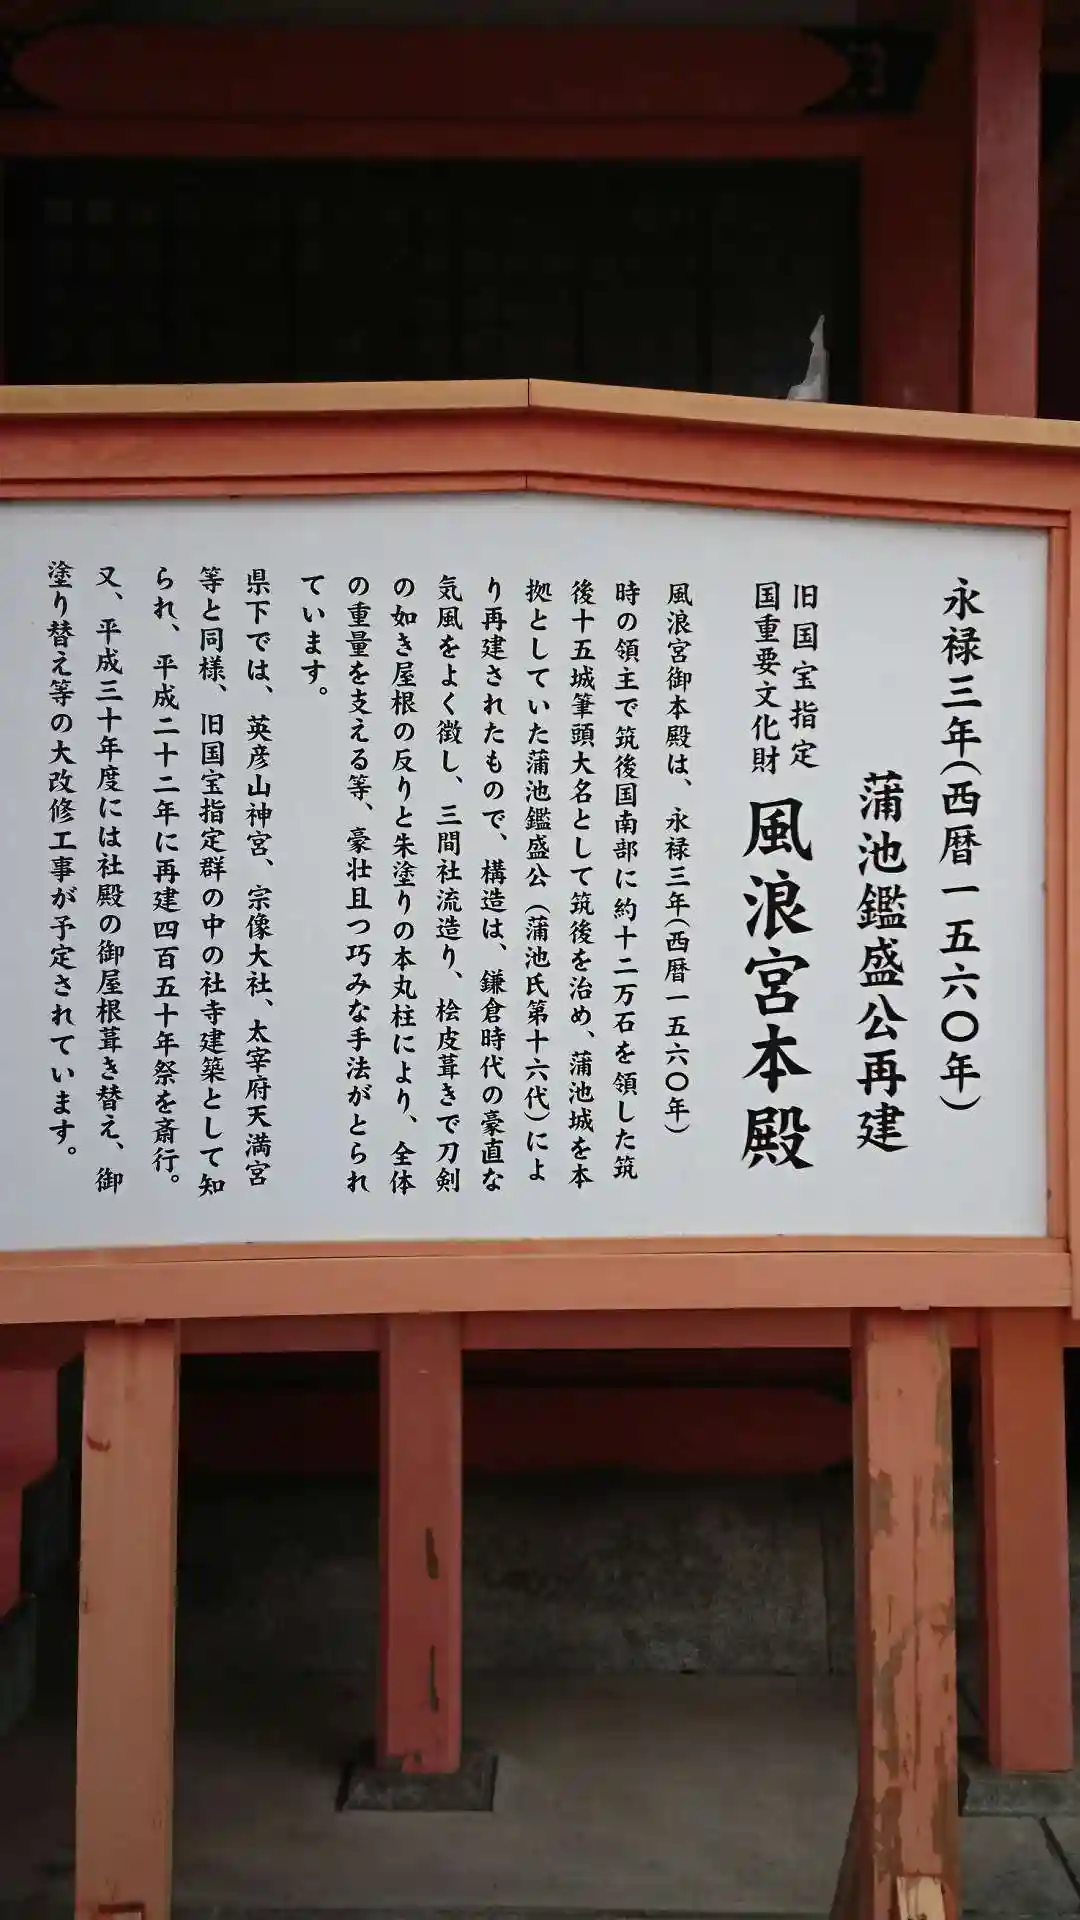 永禄三年(西暦一五六〇年)
蒲池鑑盛公再建
旧国宝指定
国重要文化財
風浪宮本殿
風浪宮御本殿は、永禄三年(西暦一五六〇年)
時の領主で筑後国南部に約十二万石を領した筑
後十五城筆頭大名として筑後を治め、蒲池城を本
拠としていた蒲池鑑盛公(蒲池氏第十六代)によ
り再建されたもので、構造は、鎌倉時代の豪直な
気風をよく徴し、三間社流造り、桧皮葺きで刀剣
の如き屋根の反りと朱塗りの本丸柱により、全体
の重量を支える等、豪壮且つ巧みな手法がとられ
ています。
県下では、英彦山神宮、宗像大社、太宰府天満宮
等と同様、旧国宝指定群の中の社寺建築として知
られ、平成二十二年に再建四百五十年祭を斎行。
又、平成三十年度には社殿の御屋根葺き替え、御
塗り替え等の大改修工事が予定されています。